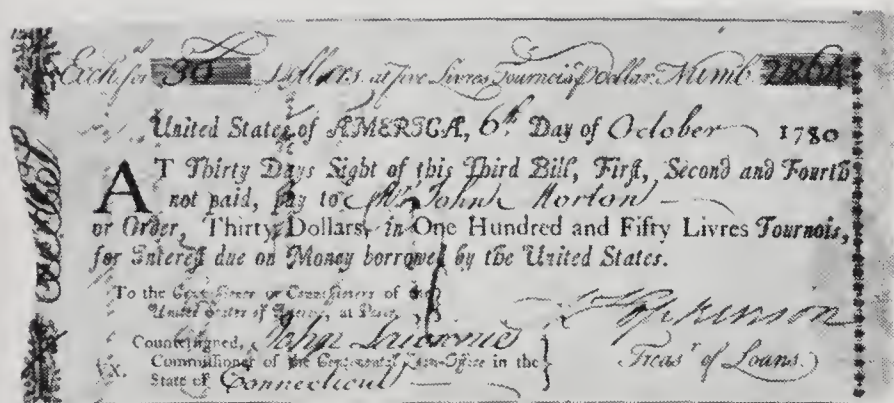 Exch.ᵃ for 30 Dollars at five Livres Tournois ꝑ dollar. Numb. 2864
United States of AMERICA, 6th Day of October 1780
AT Thirty Days Sight of this Third Bill, First, Second and Fourth
not paid, pay to Mr. John Morton
or Order, Thirty Dollars, in One Hundred and Fifty Livres Tournois,
for Interest due on Money borrowed by the United States.
To the Commissioner or Commissioners of the
United States of America, at Paris.
F Hopkinson
Countersigned, John Lawrence
Treasr of Loans.
Commissioner of the Continental Loan-Office in the
State of Connecticut